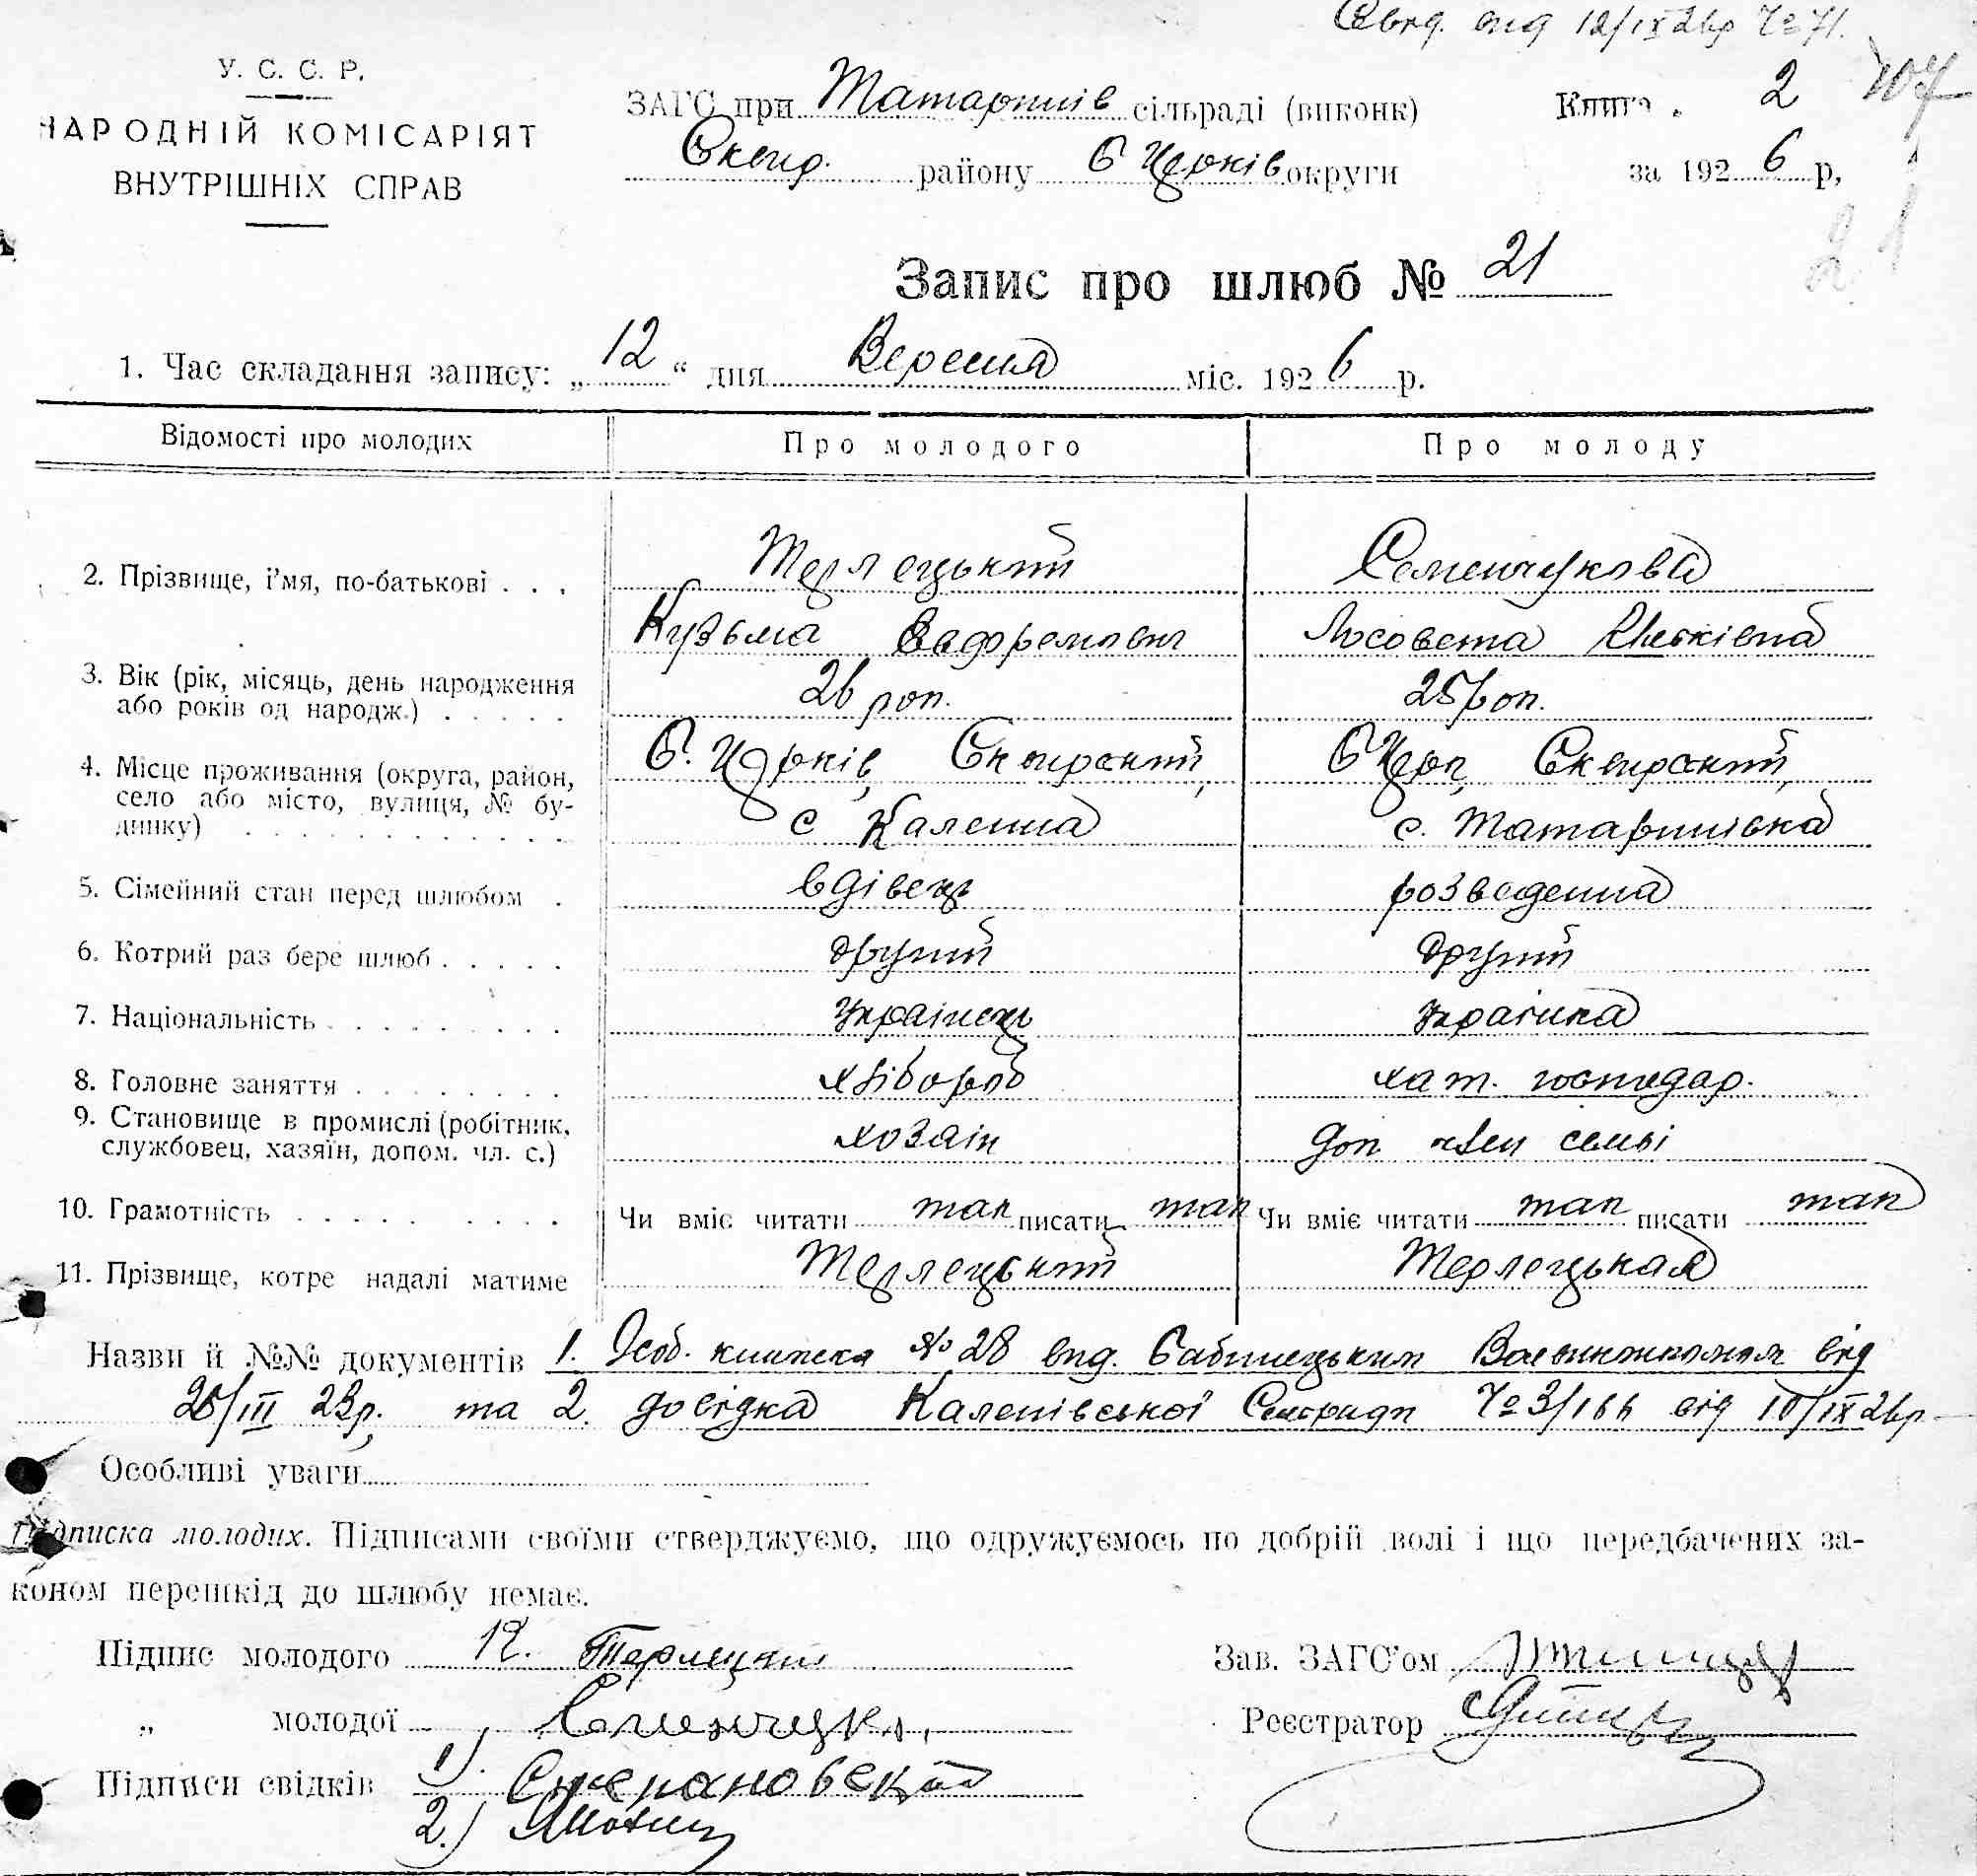 12/IX 26р № 71.
У. С. С. Р.
НАРОДНІЙ КОМІСАРІЯТ
ВНУТРІШНІХ СПРАВ
ЗАГС при Татаринів сільраді (виконк)
Сквир. району Б Церків округи
Книга 2 107
за 192 6 р,
Запис про шлюб № 21
1. Час складання запису: „ 12 “ дня Вересня міс. 192 6 р.
Відомості про молодих Про молодого Про молоду
2. Прізвище, і'мя, по-батькові . . . Терлецький Семенчукова
Кузьма Лисовета
3. Вік (рік, місяць, день народження 26 рок. 25 рок.
або років од народж.) . . . . .
4. Місце проживання (округа, район, Б. Церків, Сквирский, Б Церк, Сквирский,
село або місто, вулиця, № бу-
динку) . . . . . . . . . . . . с Каленна с. Татаринівка
5. Сімейний стан перед шлюбом . вдівець розведенна
6. Котрий раз бере шлюб . . . . . другий другий
7. Національність . . . . . . . . . Українець Українка
8. Головне заняття . . . . . . . . хлібороб хат. господар.
9. Становище в промислі (робітник,
службовец, хазяїн, допом. чл. с.) хозяін доп член семьі
10. Грамотність . . . . . . . . . Чи вміє читати так писати так Чи вміє читати так писати так
11. Прізвище, котре надалі матиме Терлецький Терлецькая
Назви й №№ документів 1. Особ. книжка № 28 вид. від
20/III 23р. та 2. довідка Каленівської Сельради № 3/166 від 10/IX 26р
Особливі уваги
Підписка молодих. Підписами своїми стверджуємо, що одружуємось по добрій волі і що передбачених за-
коном перешкід до шлюбу немає.
Підпис молодого К. Терлецкий Зав. ЗАГС'ом
„ молодої Семенчук Реєстратор
Підписи свідків 1)
2.)